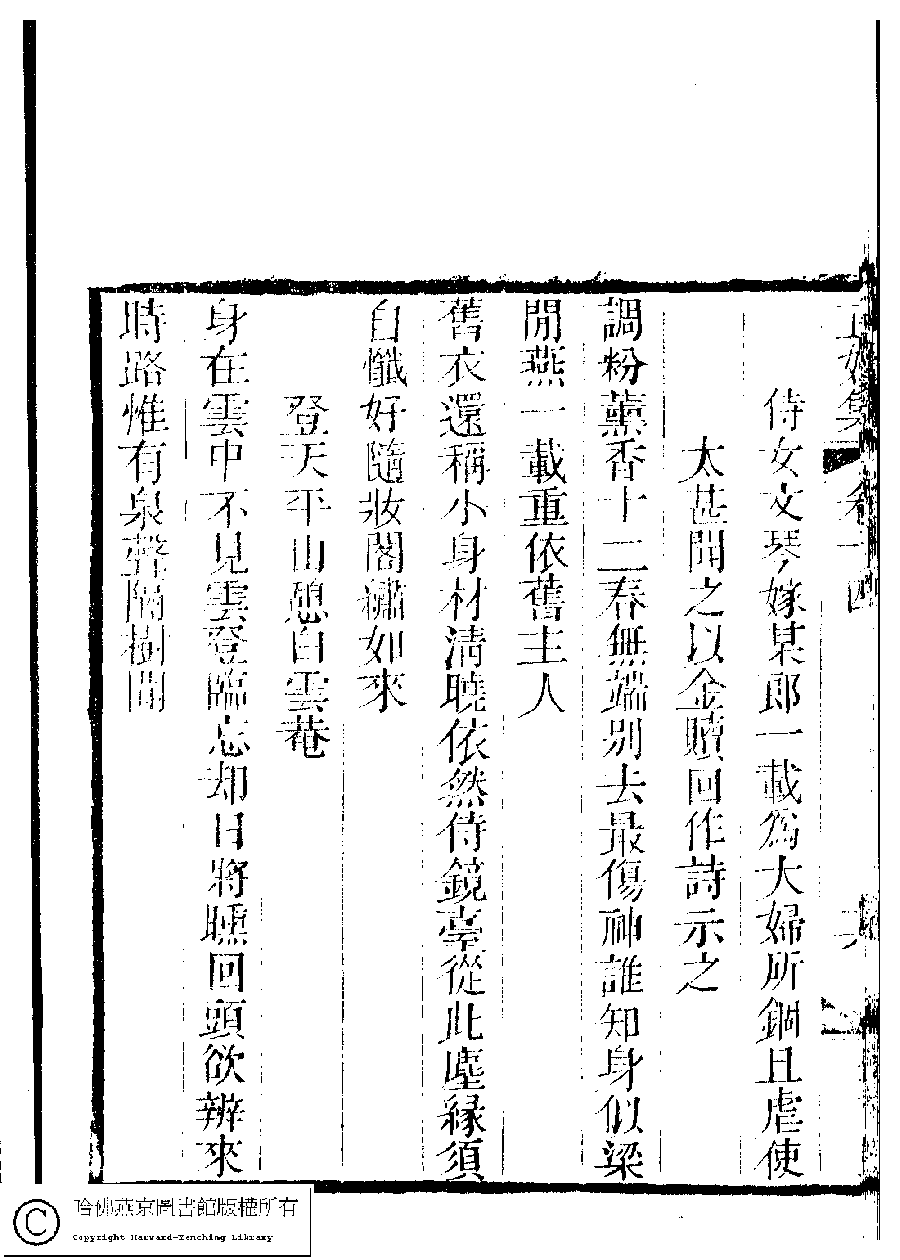 正始集 卷十四
侍女文琴嫁某郎一載為大婦所錮且虐使
太甚聞之以金贖回作詩示之
調粉薰香十二春無端別去最傷神誰知身似梁
間燕一載重依舊主人
舊衣還稱小身材清曉依然侍鏡臺從此塵緣須
自懺好隨妝閣繡如來
登天平山憩白雲菴
身在雲中不見雲登臨忘却日將曛回頭欲辨來
時路惟有泉聲隔樹聞
哈佛燕京圖書館版權所有
Copyright Harvard-Yenching Library